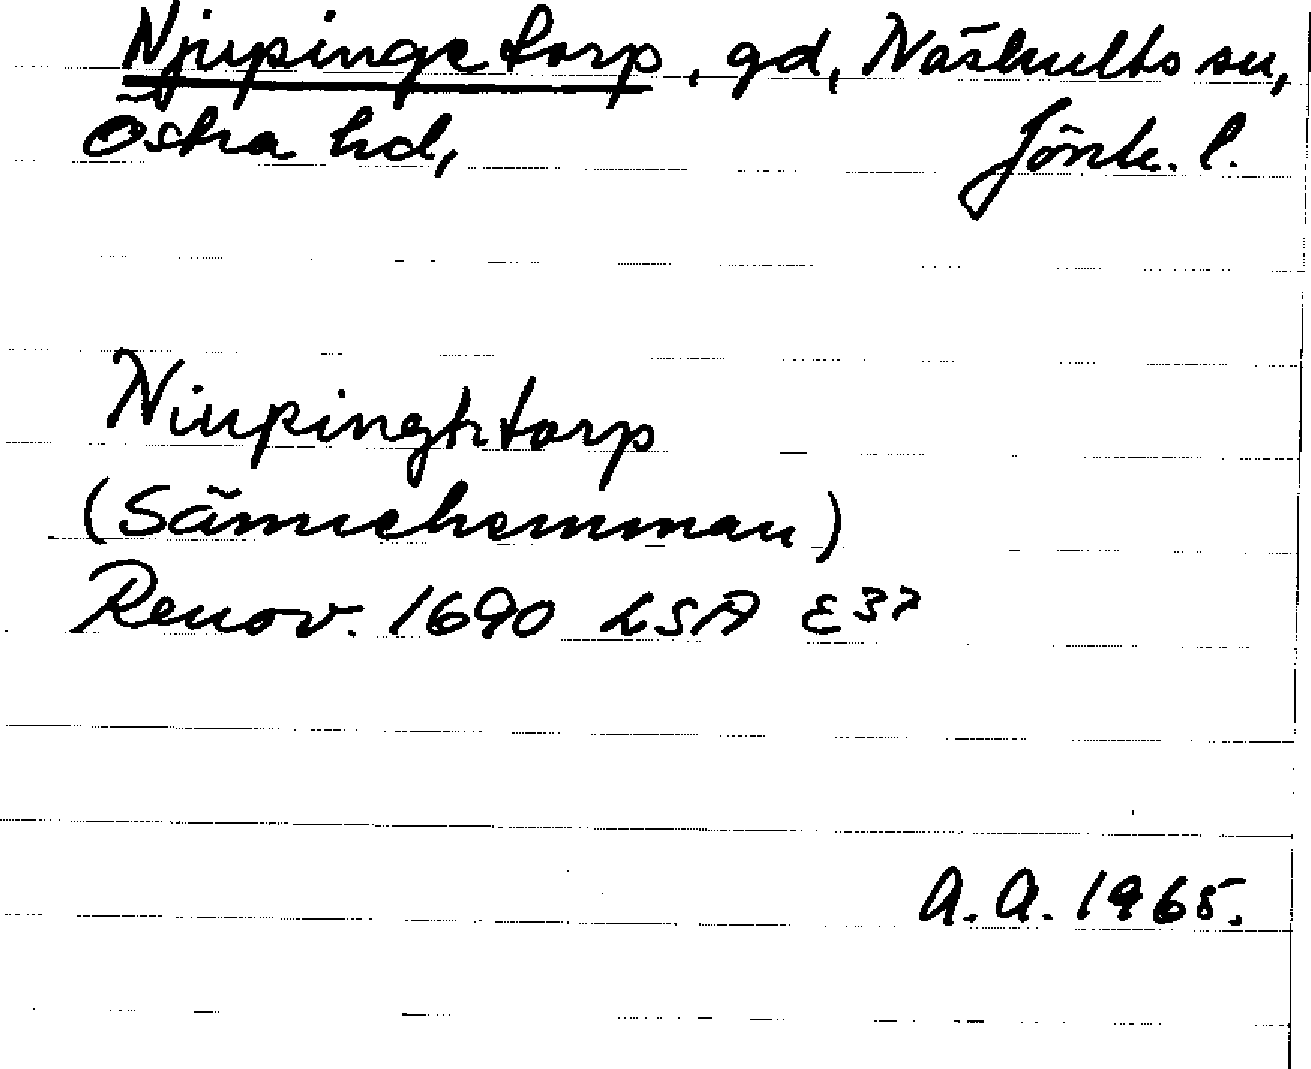 Njupingetorp, gd, Näshults sn,
Östra hd, Jönk. l.
Niupinghtorp
(Sämiehemman)
Renov. 1690 LSA E37
A.A. 1965.